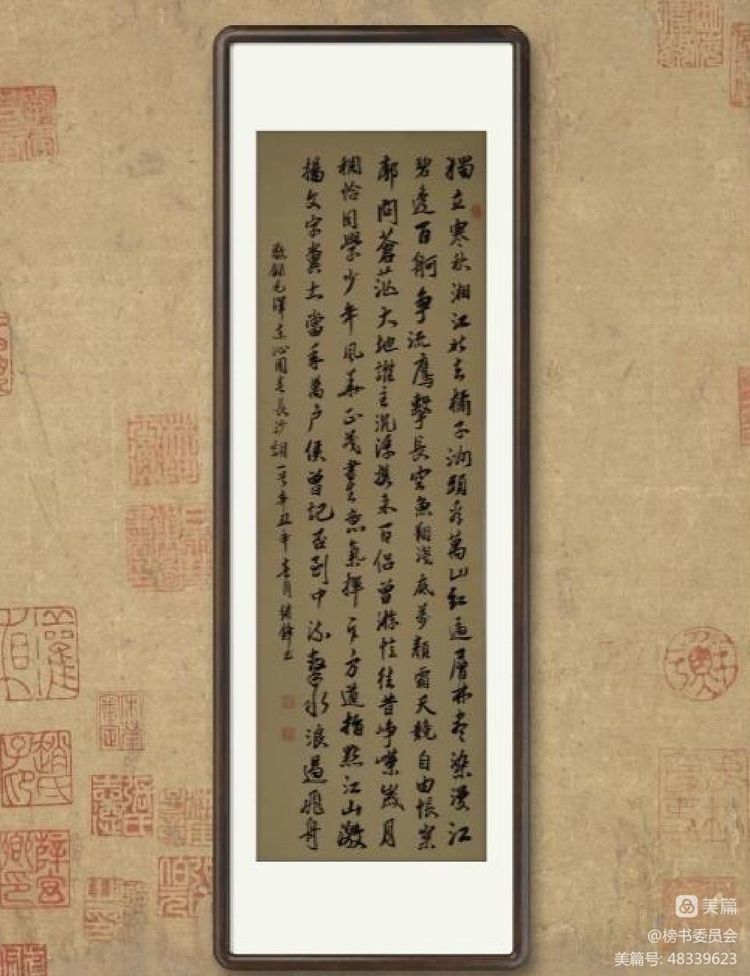 獨立寒秋湘江北去橘子洲頭看萬山紅遍層林盡染漫江
碧透百舸争流鷹擊長空魚翔淺底萬類霜天競自由悵寥
廓問蒼茫大地誰主沉浮携来百侣曾游憶往昔崢嶸歲月
稠恰同學少年風華正茂書生意氣揮斥方遒指點江山激
揚文字糞土當年萬户侯曾記否到中流擊水浪遏飛舟
敬録毛澤東沁園春長沙詞一首辛丑年春月
美篇
@榜书委员会
美篇号: 48339623